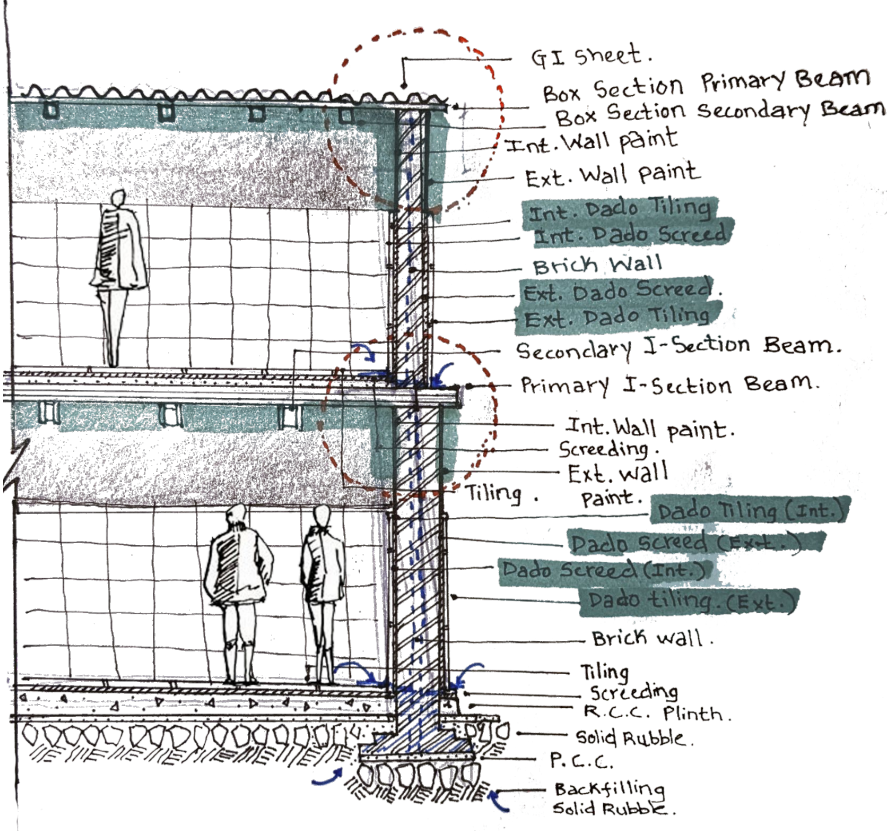 GI Sheet.
Box Section Primary Beam
Box Section Secondary Beam
Int. Wall paint
Ext. Wall paint
Int. Dado Tiling
Int. Dado Screed
Brick Wall
Ext. Dado Screed.
Ext. Dado Tiling
Secondary I-Section Beam.
Primary I-Section Beam.
Int. Wall paint.
Screeding.
Ext. Wall
paint.
Tiling.
Dado Tiling (Int.)
Dado Screed (Ext.)
Dado Screed (Int.)
Dado tiling. (Ext.)
Brick wall.
Tiling
Screeding
R.C.C. Plinth.
Solid Rubble.
P.C.C.
Backfilling
Solid Rubble.